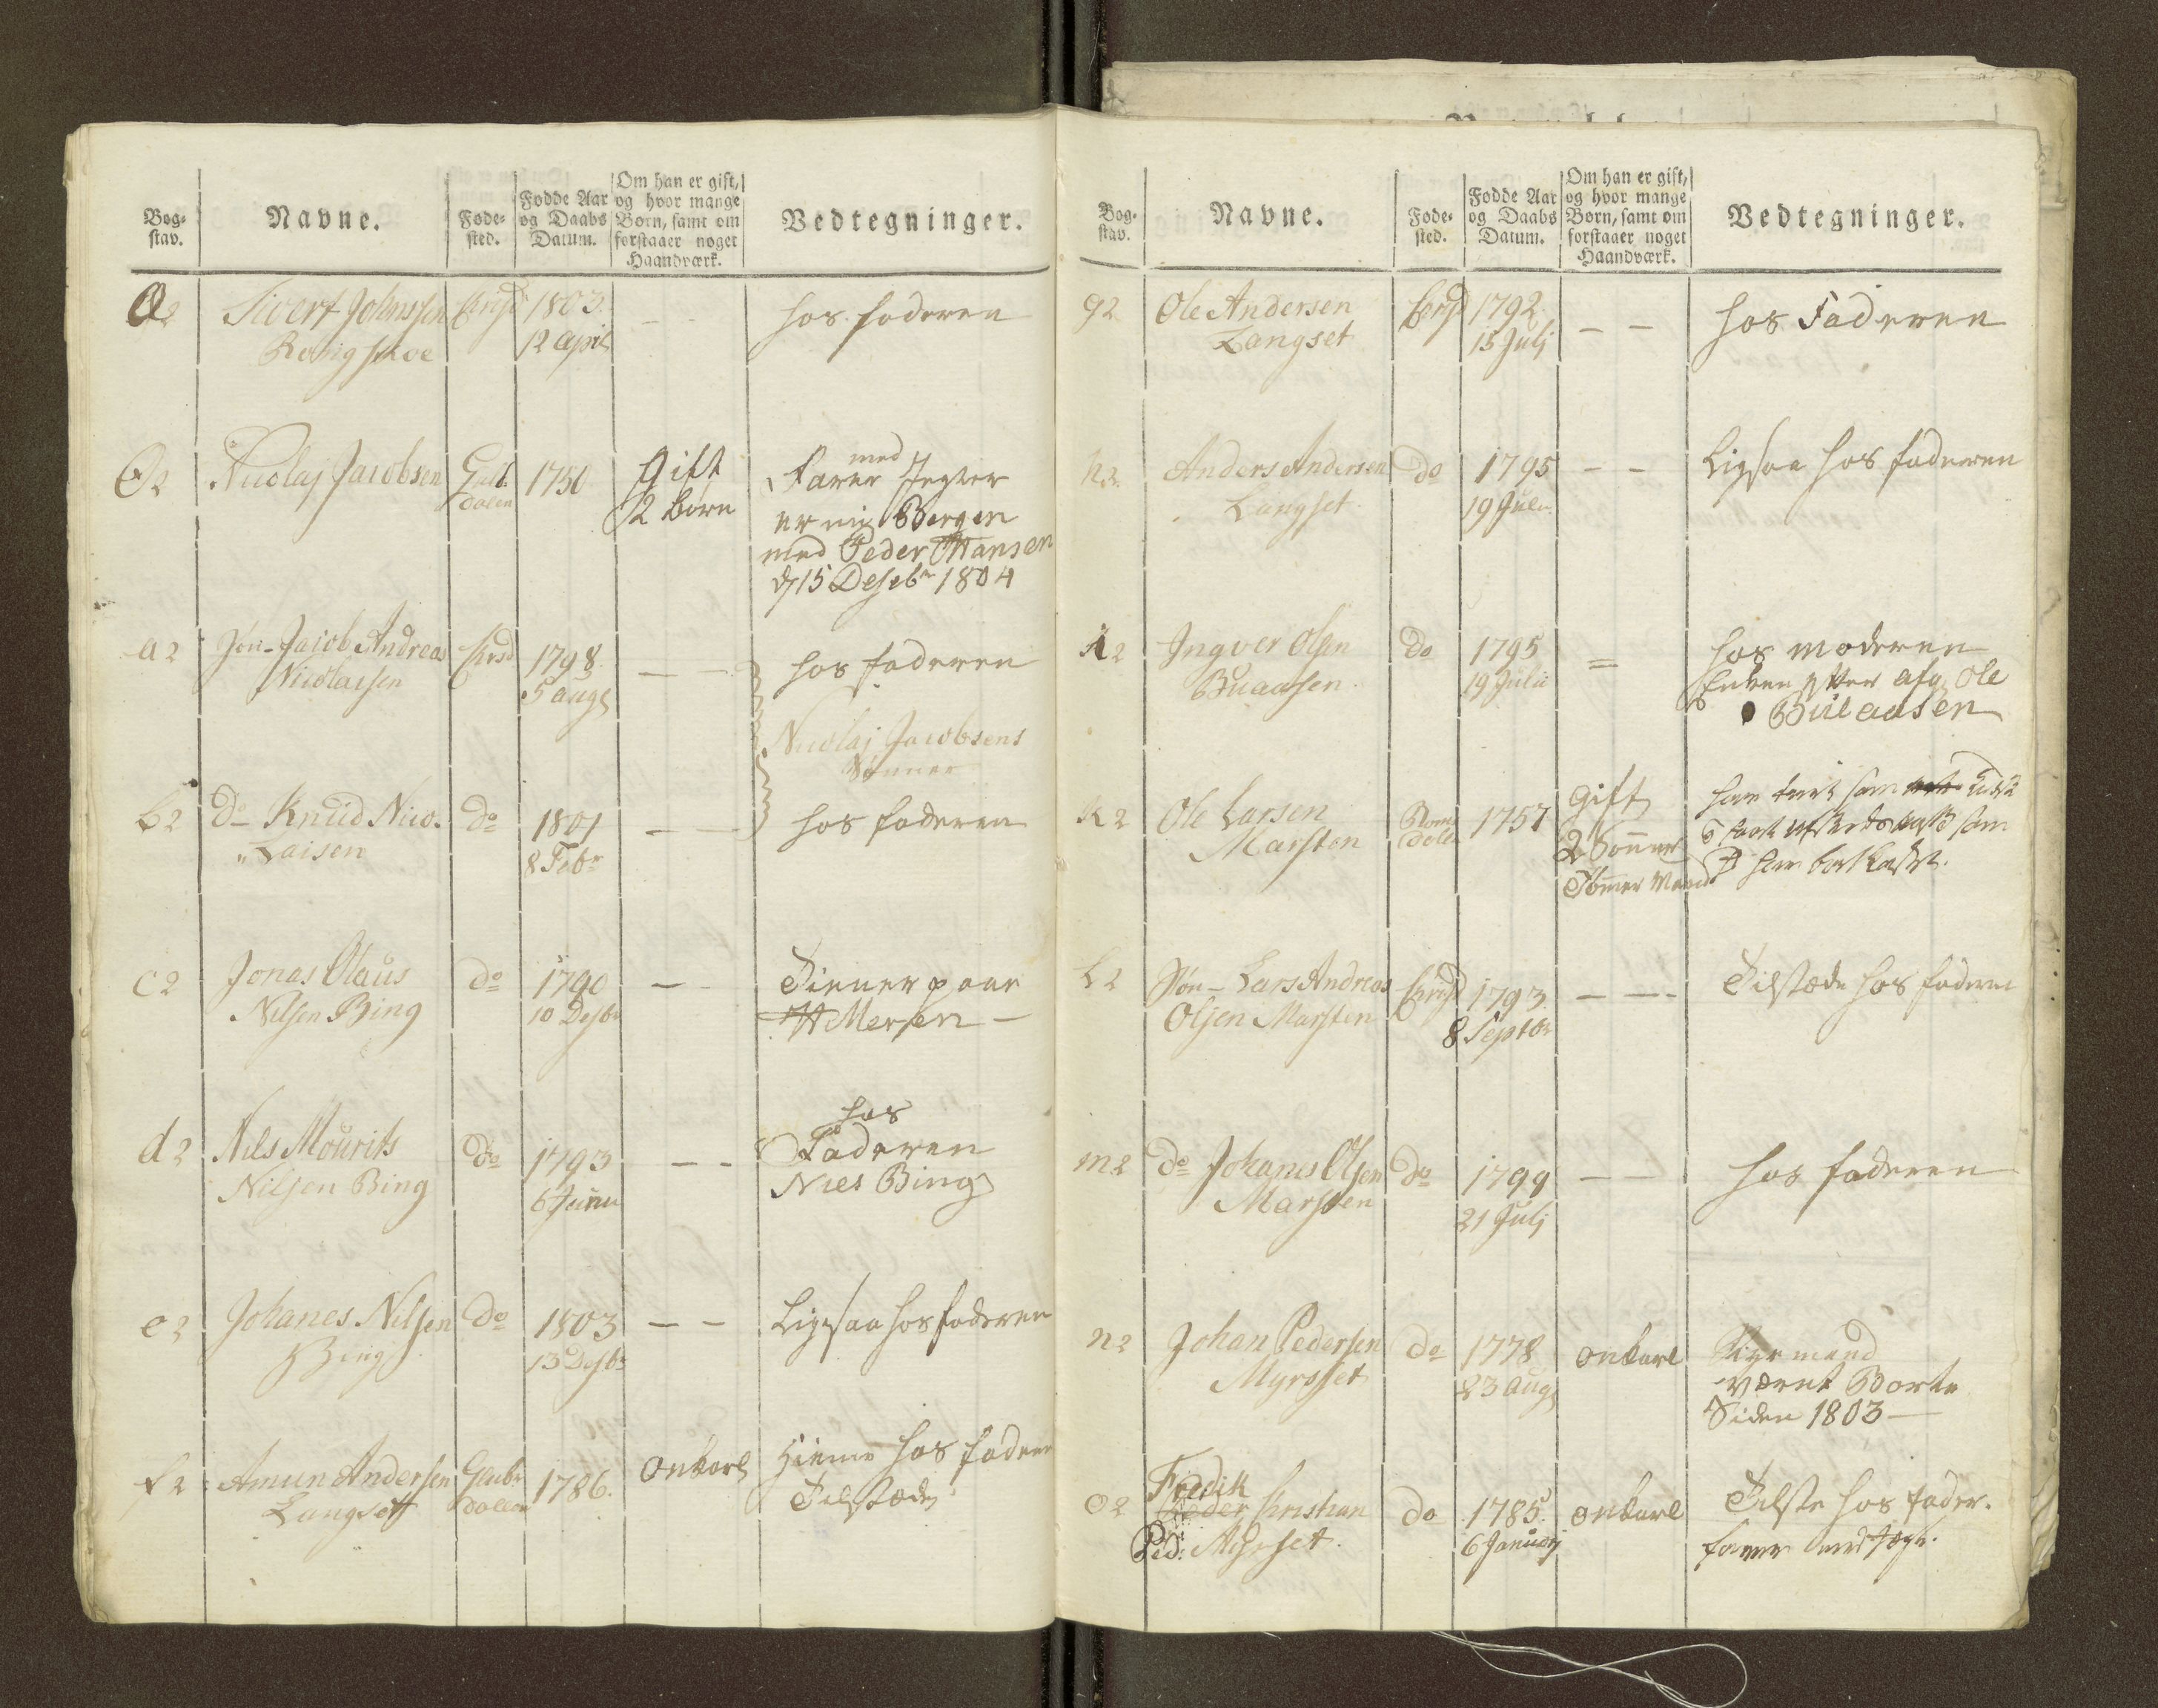 Bog-
stav.
Navne.
Føde-
sted.
Fødde Aar
og Daabs
Datum.
Om han er gift,
og hvor mange
Børn, samt om
forstaaer noget
Haandværk.
Vedtegninger.
Sivert Johnssen
1803.
12 April
hos faderen
Ø2
Nicolaj Jacobsen
Guld
dalen
1750
Gift
2 børn
med
Farer Jegter
er nu Bergen
med Peder Hansen
d 15 Desebr 1804
a2
Jøn- Jacob Andreas
Nicolaisen
1798
5 Aug
hos faderen
Nicolaj Jacobsens
Sønner
b2
do Knud Nico-
laisen
do
1801
8 Febr
hos faderen
c2
Jonas Olaus
Nilsen Bing
do
1790
10 Desbr
Tiener paar
d2
Nils Mourits
Nilsen Bing
do
1793
6 Juni
hos
Faderen
Niels Bing
e2
Johanes Nilsen
Bing
do
1803
13 Desbr
Ligesaa hos faderen
f2
Amun Andersen
Langset
1786.
Onkarl
Hieme hos fader
Tilstæde
Bog-
stav.
Navne.
Føde-
sted.
Fødde Aar
og Daabs
Datum.
Om han er gift,
og hvor mange
Børn, samt om
forstaaer noget
Haandværk.
Vedtegninger.
g2
Ole Andersen
Langset
1792
15 Julj
hos Faderen
h2
Anders Andersen
Langset
do
1795
19 Jule
Ligsaa hos faderen
i2
Ingver Olsen
Buaasen
do
1795
19 Julii
hos moderen
Enken efter afg Ole
Bulaasen
k2
Ole Larsen
Marsten
Rom
dole
1757
Gift
2 Sønner
Tømer Mand
l2
Jøn- Lars Andreas
Olsen Marsten
1793
8 Septbr
Tilstæde hos faderen
m2
do Johanes Olsen
Marsten
do
1799
21 Julj
hos faderen
n2
Johan Pedersen
Myrsset
do
1778
23 Aug
onkarl
Styrmand
været Borte
Siden 1803
o2
Fredik
Peder Christian
Ped: Myrset
do
1785
6 Januarj
onkarl
Tilste hos fader.
farer med Jegt.